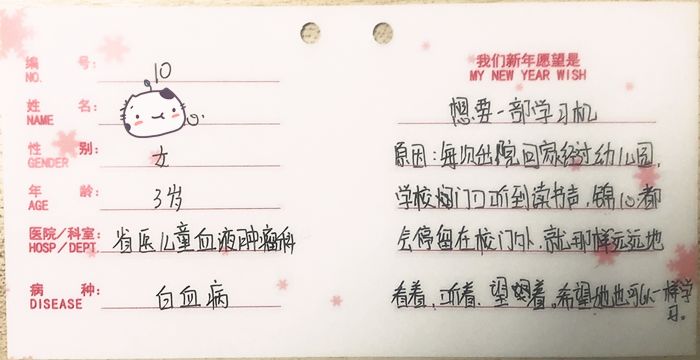 编 号: 10
NO.
姓 名:
NAME
性 别: 女
GENDER
年 龄: 3岁
AGE
医院/科室: 省医儿童血液肿瘤科
HOSP/DEPT.
病 种: 白血病
DISEASE
我们新年愿望是
MY NEW YEAR WISH
想要一部学习机
原因:每次出院回家经过幼儿园,
学校的门口听到读书声,锦 都
会停留在校门外,就那样远远地
看着、听着、望 着。希望她也可以一样学
习。